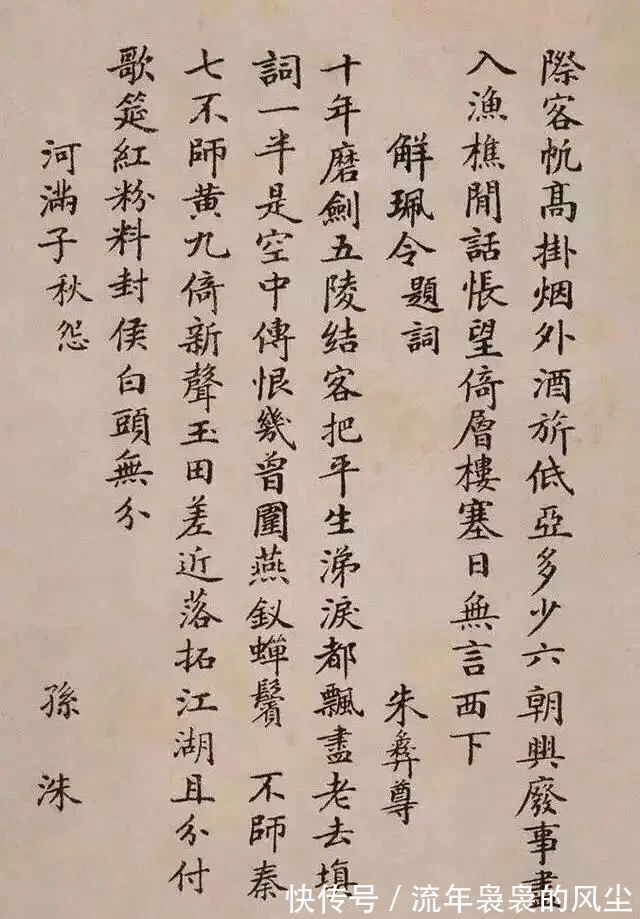 際客帆高掛烟外酒旂低亞多少六朝興廢事盡
入漁樵閒話悵望倚層樓塞日無言西下
解珮令題詞 朱彝尊
十年磨劍五陵結客把平生涕淚都飄盡老去填
詞一半是空中傳恨幾曾圍燕釵蟬鬢 不師秦
七不師黃九倚新聲玉田差近落拓江湖且分付
歌筵紅粉料封侯白頭無分
河滿子秋怨 孫洙
快传号/流年袅袅的风尘